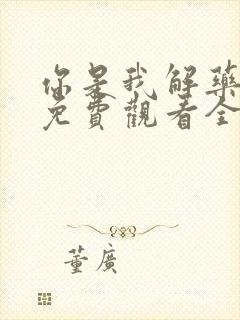 你是我解藥
免費觀看全
董廣